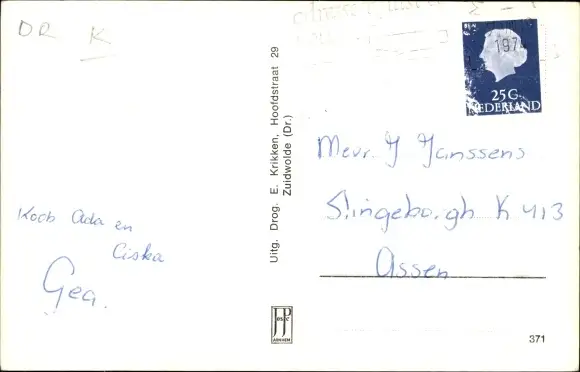 DR K
197
25 C
NEDERLAND
Uitg. Drog. E. Krikken, Hoofdstraat 29
Zuidwolde (Dr.)
Mevr. J Janssens
Slingeborgh K 413
Assen
Koob Ada en
Ciska
Gea.
JosPé
ARNHEM
371